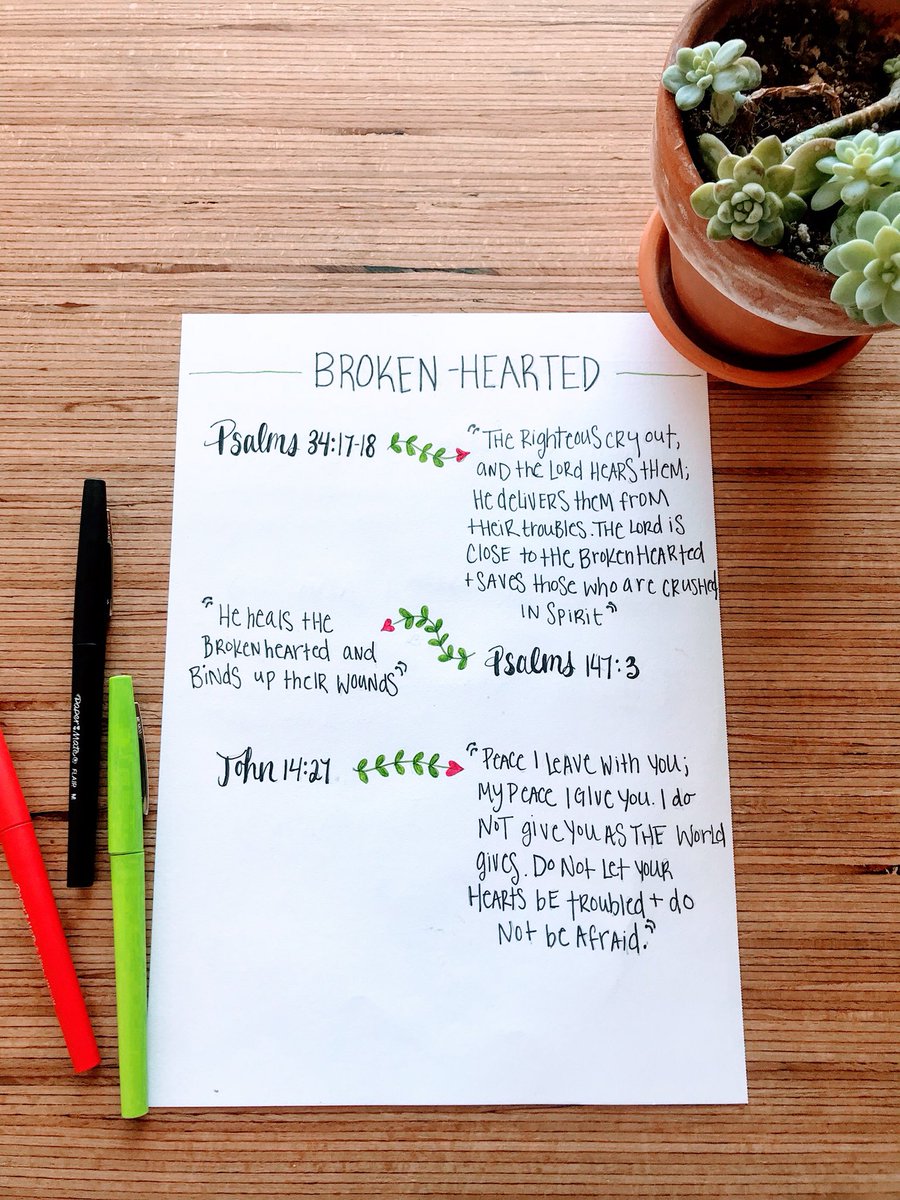 BROKEN-HEARTED
Psalms 34:17-18
"THE RighteousCRY OUT,
AND the LORD HEARS THEM;
HE delivers them from
their troubles. THE LORD IS
CLOSE to the BROKENHEARTED
+ SAVES those who are CRUSHED
IN SPIRIT"
"He heals the
BROKENhearted and
BiNDS up their WOUNDS"
Psalms 147:3
John 14:27
"PEACE I LEAVE With you;
MY PEACE I GIVE YOU. I do
NOT give you AS THE World
gives. Do Not Let your
HEARTS bE troubled + do
Not be AFRAID."
Paper:Mate FLAIR M